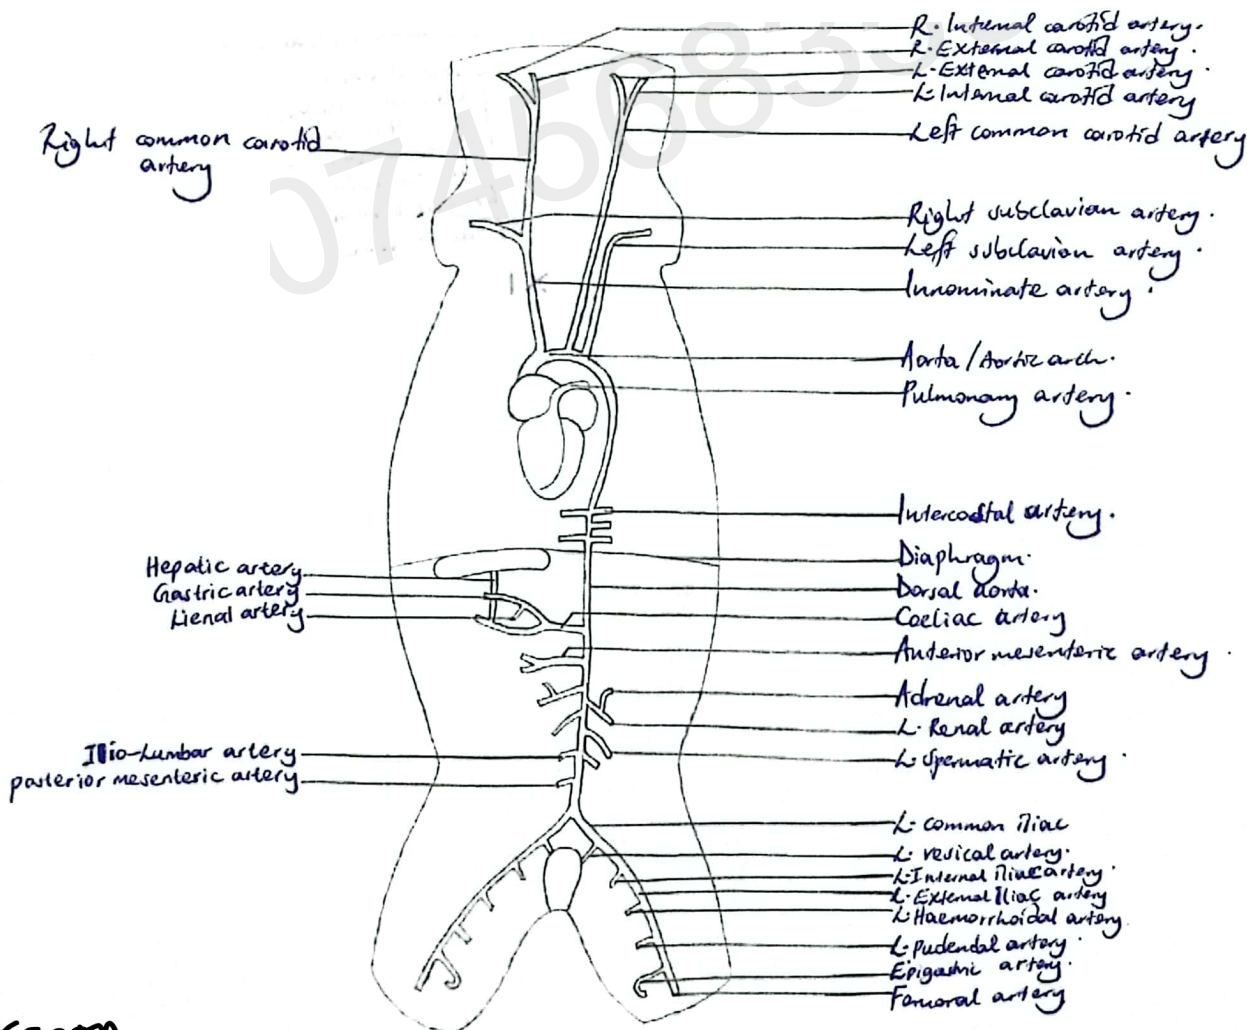 R. Internal carotid artery.
R. External carotid artery.
L. External carotid artery.
L. Internal carotid artery
Left common carotid artery
Right common carotid
artery
Right subclavian artery.
Left subclavian artery.
Innominate artery.
Aorta / Aortic arch.
Pulmonary artery.
Intercostal artery.
Diaphragm.
Dorsal aorta.
Coeliac artery
Anterior mesenteric artery.
Hepatic artery
Gastric artery
Lienal artery
Adrenal artery
L. Renal artery
L. Spermatic artery.
Ilio-Lumbar artery
posterior mesenteric artery
L. common iliac
L. vesical artery.
L. Internal iliac artery.
L. External Iliac artery
L. Haemorrhoidal artery.
L. pudendal artery.
Epigastric artery.
Femoral artery